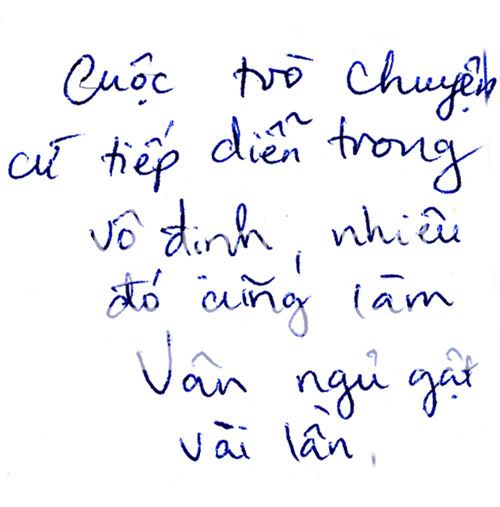 Cuộc trò chuyện
cứ tiếp diễn trong
vô định, nhiêu
đó cũng làm
Vân ngủ gật
vài lần.